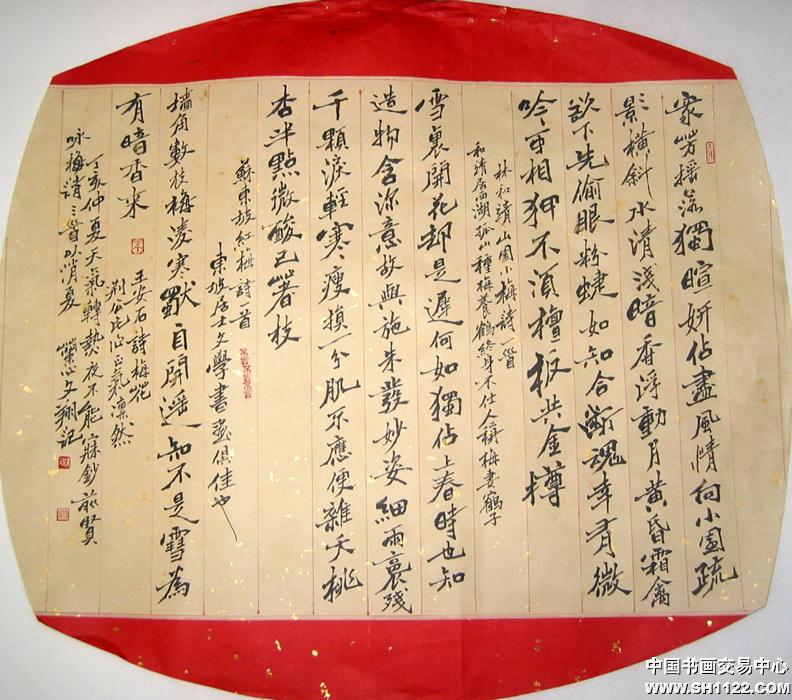 眾芳搖落獨暄妍佔盡風情向小園疏
影橫斜水清淺暗香浮動月黃昏霜禽
欲下先偷眼粉蝶如知合斷魂幸有微
吟可相狎不須檀板共金樽
林和靖山園小梅詩一首
和靖居西湖孤山種梅養鶴終身不仕人稱梅妻鶴子
雪裏開花却是遲何如獨佔上春時也知
造物含深意故與施朱發妙姿細雨裛殘
千顆淚輕寒瘦損一分肌不應便雜夭桃
杏半點微酸已著枝
蘇東坡紅梅詩一首
東坡居士文學書畫俱佳也
墙角數枝梅凌寒獸自開遥知不是雪為
有暗香来
王安石詩梅花
荆公此心正氣凛然
丁亥仲夏天氣轉熱夜不能寐鈔前賢
咏梅詩三首以消夏 文翔記
中国书画交易中心
www.SH1122.com